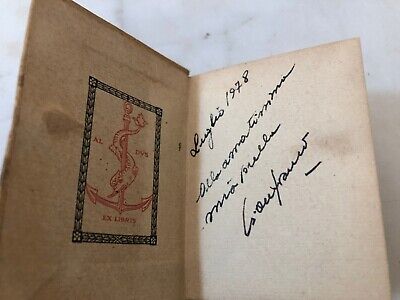 AL DVS
EX LIBRIS
Luglio 1978
Alla amatissima
mia
Gianfranco